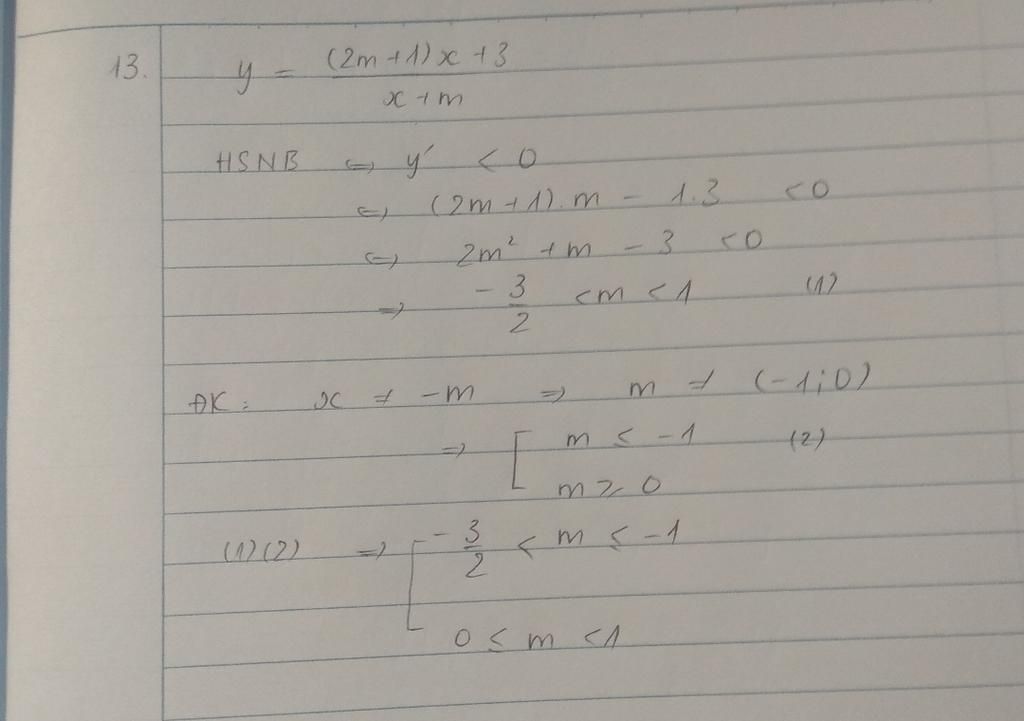 13. y = \frac{(2m+1)x+3}{x+m}
HSNB ⇔ y' < 0
⇔ (2m+1).m - 1.3 < 0
⇔ 2m² + m - 3 < 0
⇒ -\frac{3}{2} < m < 1 (1)
ĐK: x ≠ -m ⇒ m ≠ (-1;0)
⇒ [ m ≤ -1 (2)
m ≥ 0
(1)(2) ⇒ [ -\frac{3}{2} < m ≤ -1
0 ≤ m < 1